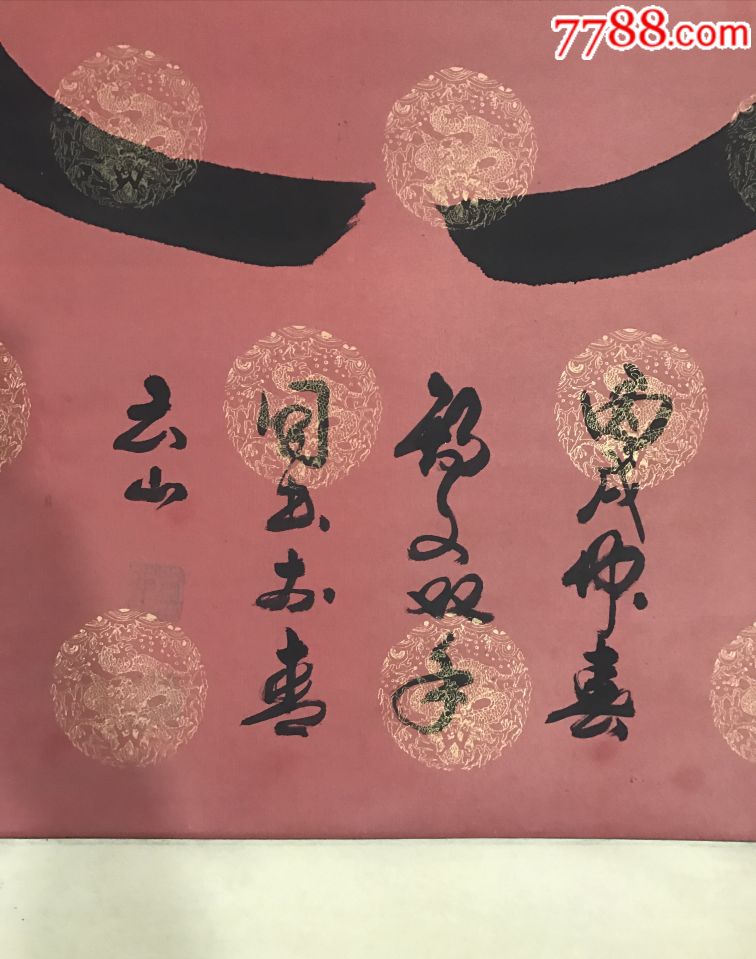 7788.com
丙戌仲春
文双手
同书於青
云山